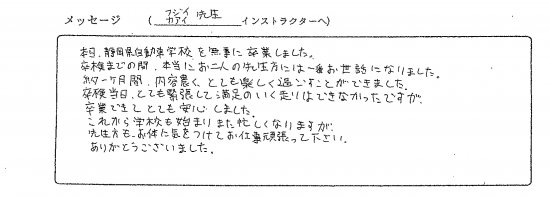 メッセージ （ フジイ カアイ 先生 インストラクターへ）
本日、静岡県自動車学校を無事に卒業しました。
卒検までの間、本当にお二人の先生方には一番お世話になりました。
約一ヶ月間、内容濃く、とても楽しく過ごすことができました。
卒検当日、とても緊張して満足のいく走りはできなかったですが、
卒業できてとても安心しました。
これから学校も始まりまた忙しくなりますが、
先生方も、お体に気をつけてお仕事頑張って下さい。
ありがとうございました。